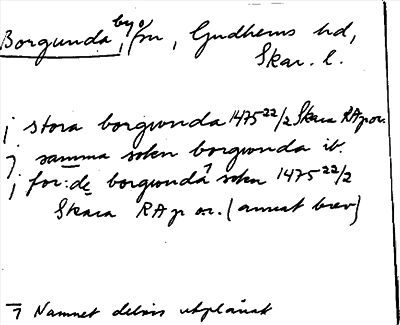 Borgunda, by o. sn, Gudhems hd,
Skar. l.
j stora borgwnda 1475 22/2 Skara RAp or.
⁊ samma sokn borgwnda ib.
j for:de borgwnda ⁊ sokn 1475 22/2
Skara RAp or. (annat brev)
⁊ Namnet delvis utplånat